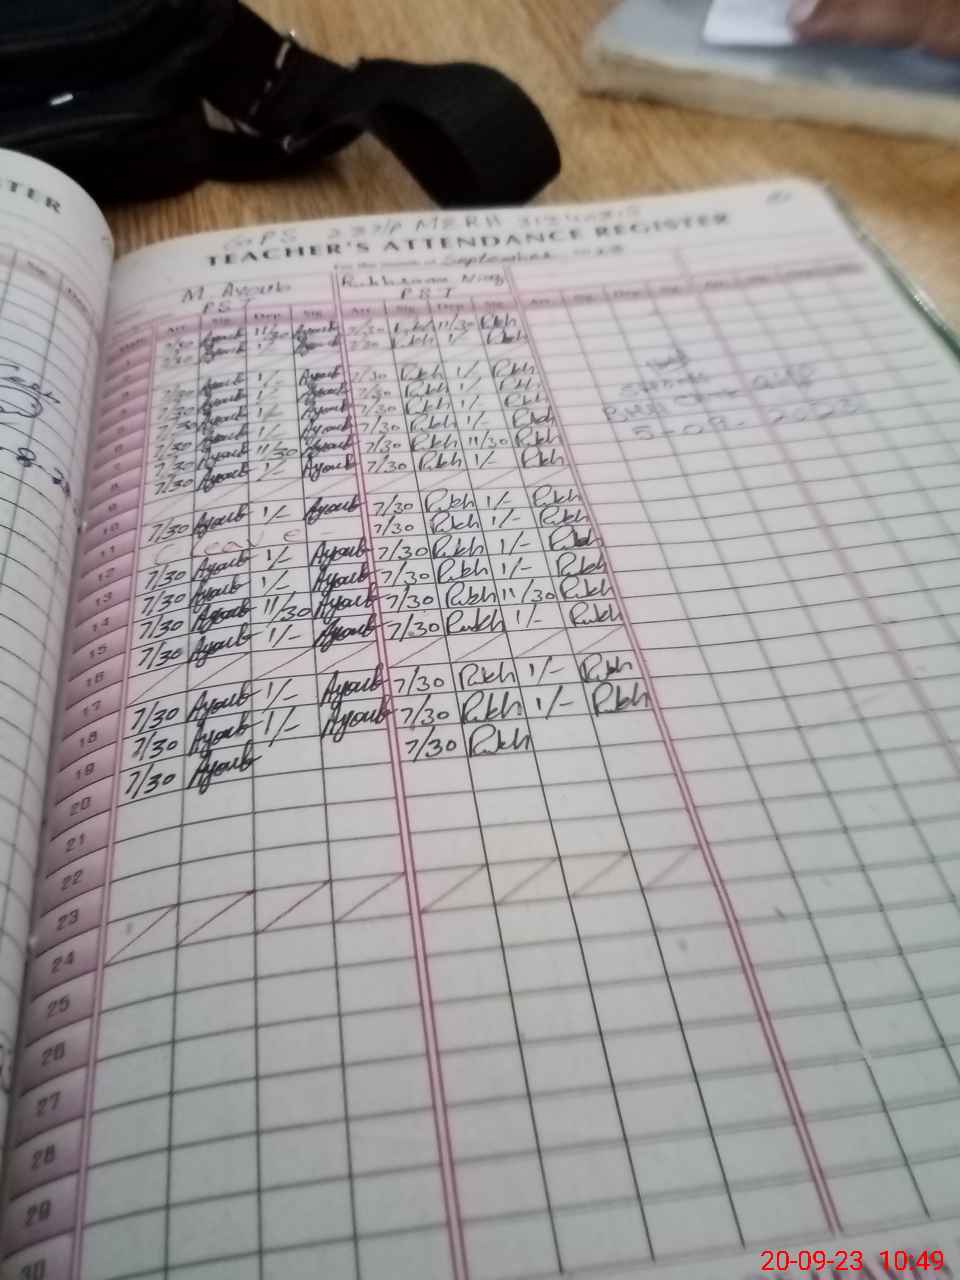 STER
GPS
TEACHER'S ATTENDANCE REGISTER
For the month of September
M. Ayoub Rukhsana Niaz
P S T P S T
Arr. Sig. Dep. Sig. Arr. Sig. Dep. Sig.
1 7/30 Ayoub 11/30 Ayoub 7/30 Rukh 11/30 Rukh
2 7/30 Ayoub 1/- Ayoub 7/30 Rukh 1/- Rukh
3
4 7/30 Ayoub 1/- Ayoub 7/30 Rukh 1/- Rukh
5 7/30 Ayoub 1/- Ayoub 7/30 Rukh 1/- Rukh
6 7/30 Ayoub 1/- Ayoub 7/30 Rukh 1/- Rukh
7 7/30 Ayoub 1/- Ayoub 7/30 Rukh 1/- Rukh
8 7/30 Ayoub 11/30 Ayoub 7/30 Rukh 11/30 Rukh
9 7/30 Ayoub 1/- Ayoub 7/30 Rukh 1/- Rukh
10
11 7/30 Ayoub 1/- Ayoub 7/30 Rukh 1/- Rukh
12 C Leave 7/30 Rukh 1/- Rukh
13 7/30 Ayoub 1/- Ayoub 7/30 Rukh 1/- Rukh
14 7/30 Ayoub 1/- Ayoub 7/30 Rukh 1/- Rukh
15 7/30 Ayoub 11/30 Ayoub 7/30 Rukh 11/30 Rukh
16 7/30 Ayoub 1/- Ayoub 7/30 Rukh 1/- Rukh
17
18 7/30 Ayoub 1/- Ayoub 7/30 Rukh 1/- Rukh
19 7/30 Ayoub 1/- Ayoub 7/30 Rukh 1/- Rukh
20 7/30 Ayoub 7/30 Rukh
21
22
23
24
25
26
27
28
29
30
5-09-2023
20-09-23 10:49